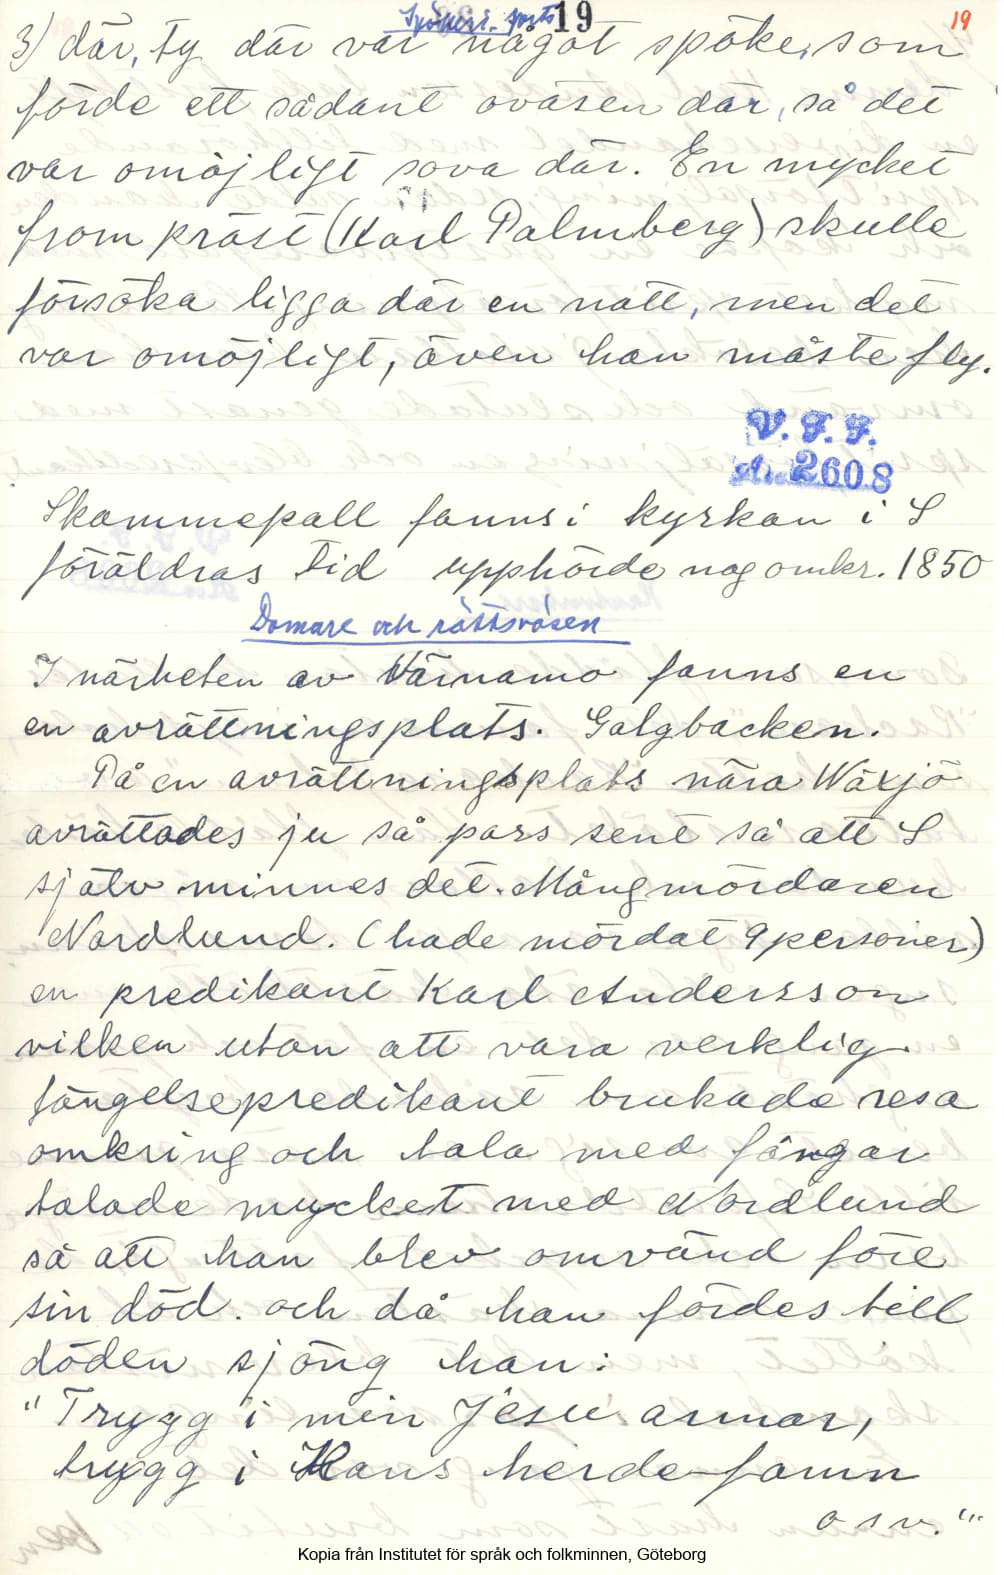 Spökeri. forts 19 19
3) där, ty där var något spöke, som
förde ett sådant oväsen där, så det
var omöjligt sova där. En mycket
from präst (Karl Palmberg) skulle
försöka ligga där en natt, men det
var omöjligt, även han måste fly.
V. F. F.
A. 2608
Skammepall fanns i kyrkan i S
föräldras tid upphörde nog omkr. 1850
Domare och rättsväsen
I närheten av Värnamo fanns en
en avrättningsplats. Galgbacken.
På en avrättningsplats nära Wäxjö
avrättades ju så pass sent så att S
själv minnes det. Mångmördaren
Nordlund. (hade mördat 9 personer)
en predikant Karl Andersson
vilken utan att vara verklig
fängelsepredikant brukade resa
omkring och tala med fångar
talade mycket med Nordlund
så att han blev omvänd före
sin död. och då han fördes till
döden sjöng han:
"Trygg i min Jesu armar,
trygg i Hans herdefamn
o s v."
Kopia från Institutet för språk och folkminnen, Göteborg